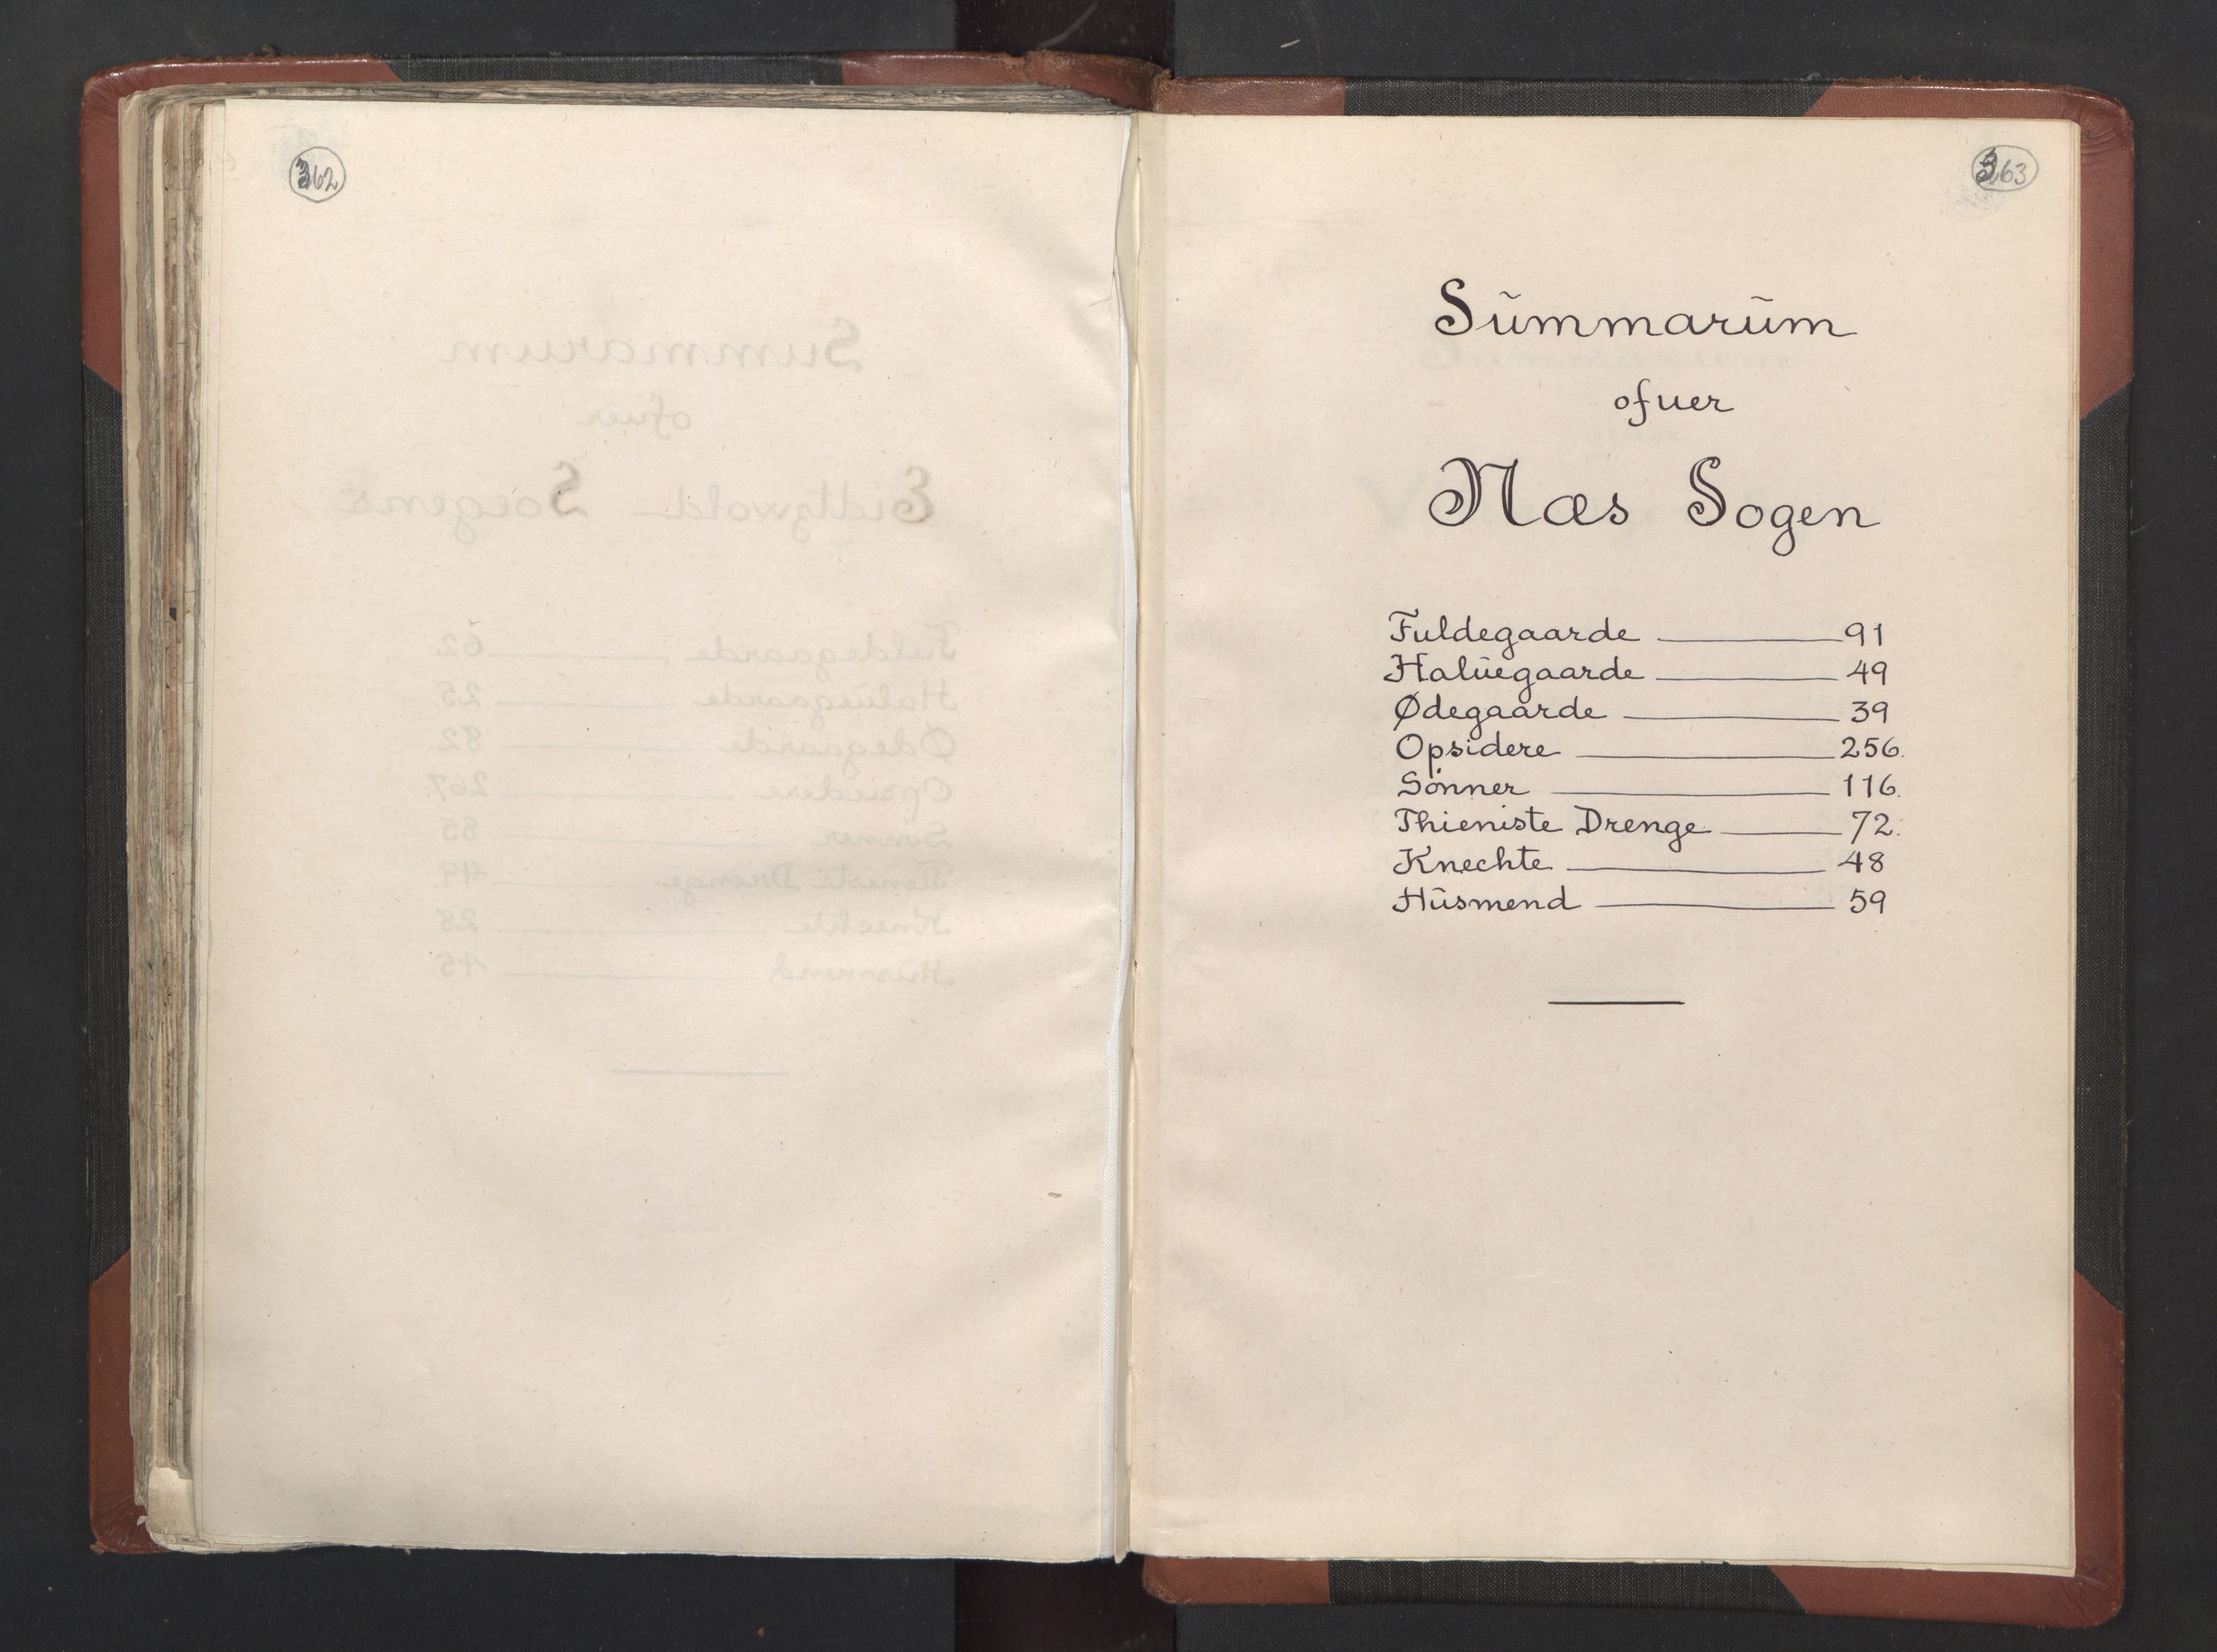 362
363
Sũmmarũm
ofuer
Næs Sogen
Fuldegaarde 91
Halũegaarde 49
Ødegaarde 39
Opsidere 256.
Sønner 116.
Thieniste Drenge 72.
Knechte 48
Hũsmend 59